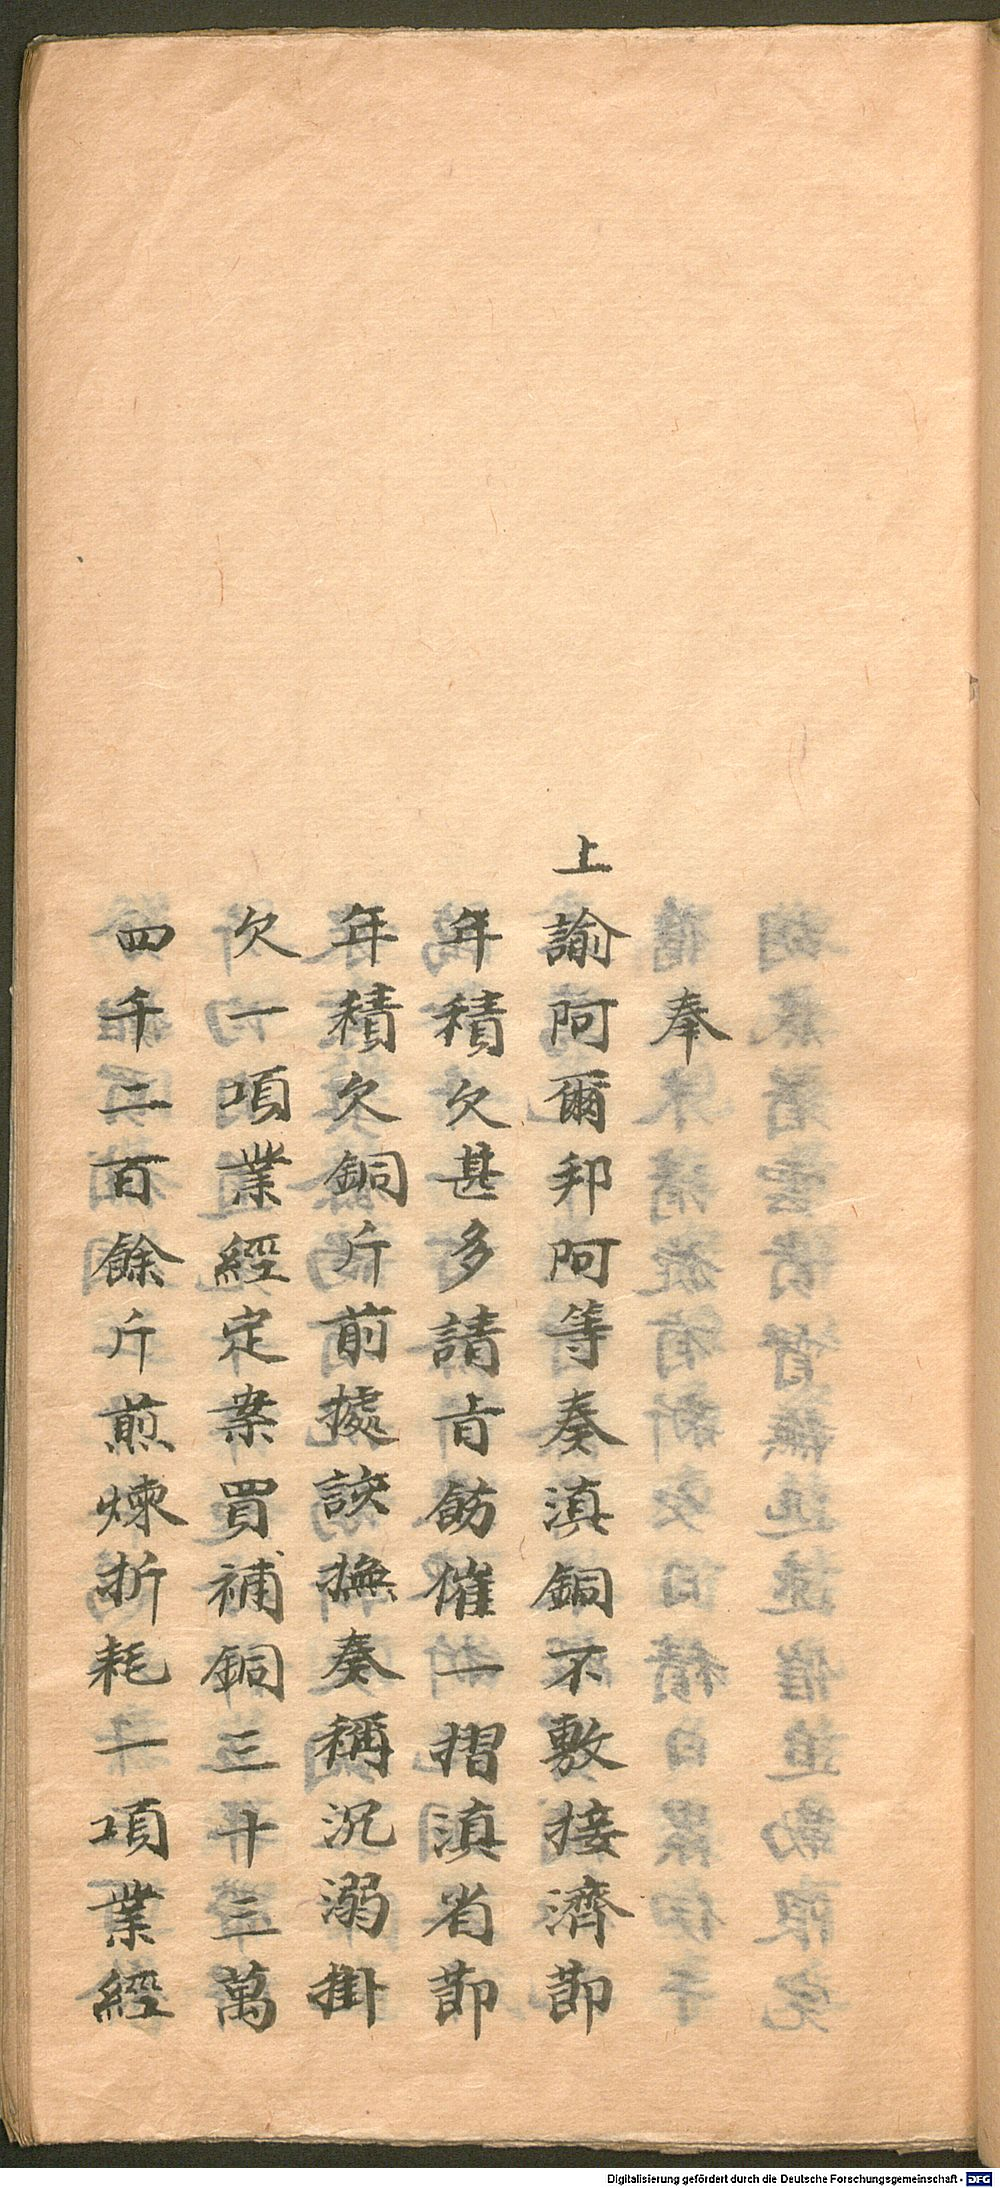 奉
上諭阿爾邦阿等奏滇銅不敷接濟節
年積欠甚多請旨飭催一摺滇省節
年積欠銅斤前據該撫奏稱沉溺掛
欠一項業經定案買補銅三十三萬
四千二百餘斤煎煉折耗一項業經
Digitalisierung gefördert durch die Deutsche Forschungsgemeinschaft - DFG